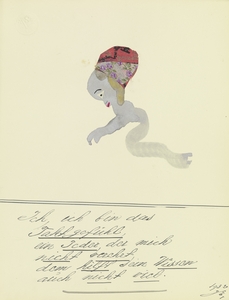 Ich, ich bin das
Taktgefühl,
an Jeder der mich
nicht
dem hilft sein Wissen
auch nicht viel.